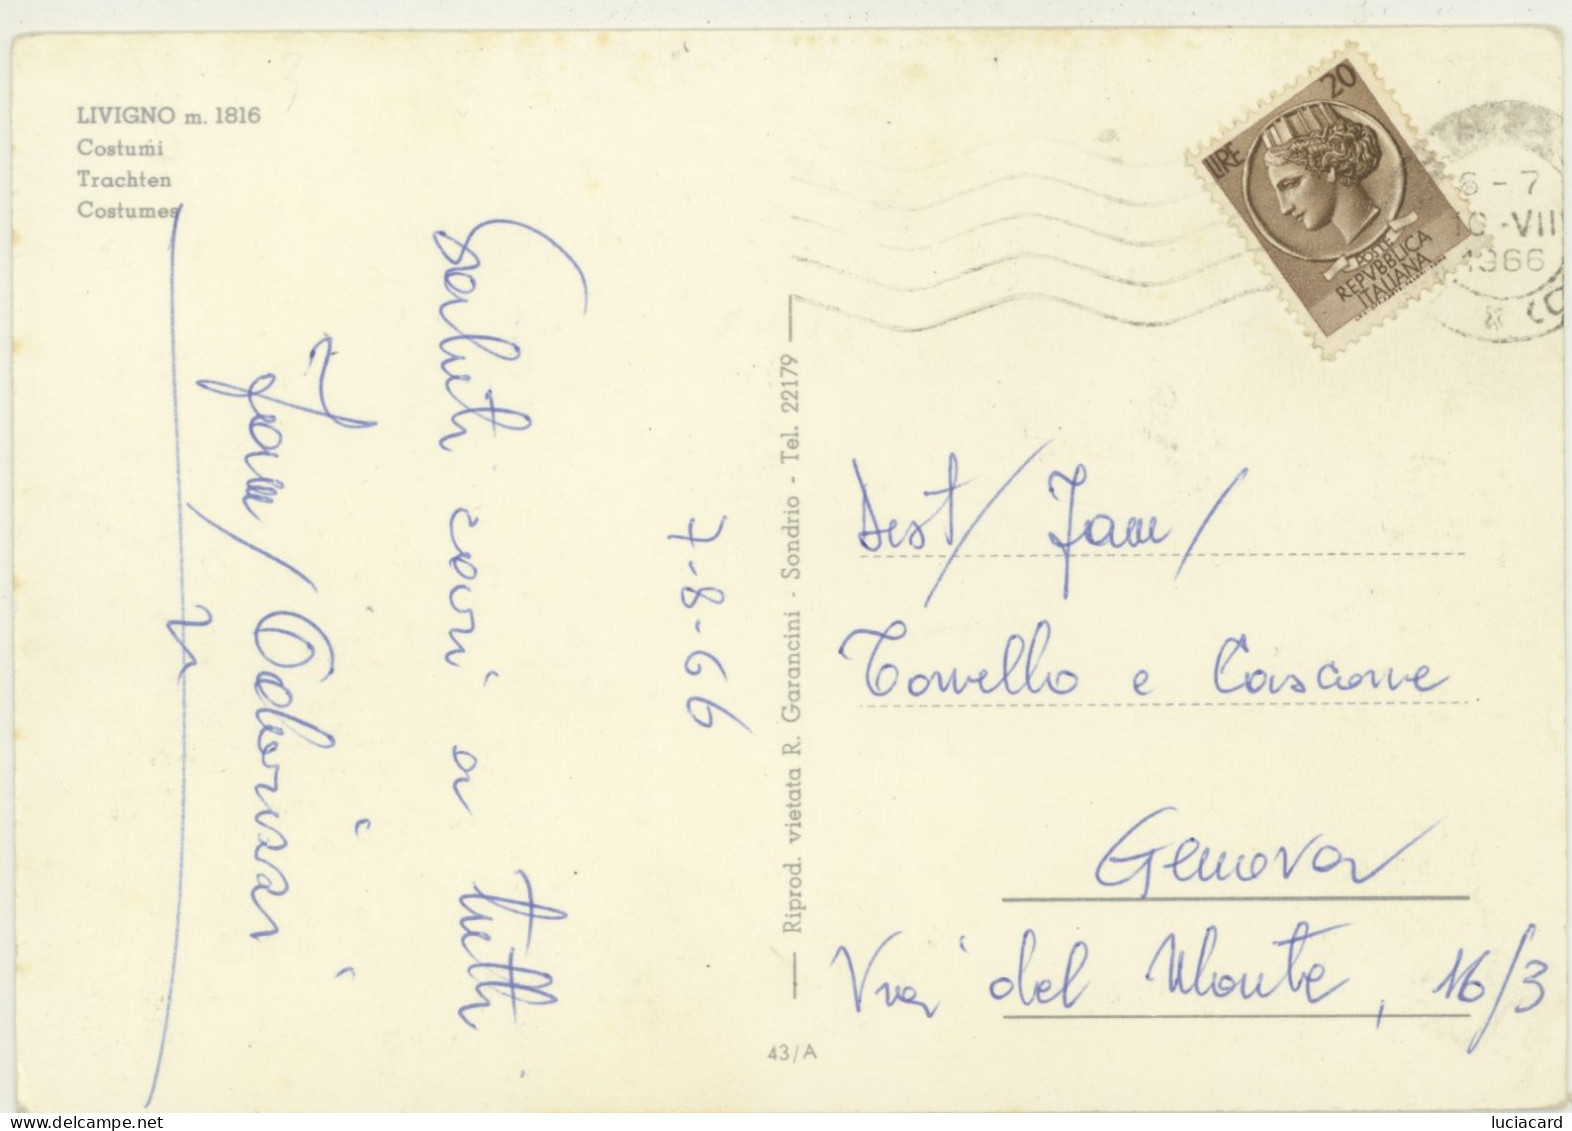 LIVIGNO m. 1816
Costumi
Trachten
Costumes
Saluti cari a tutti
Fam/ Odorissi
7-8-66
Riprod. vietata R. Garancini - Sondrio - Tel. 22179
43/A
LIRE 20
POSTE
REPVBBLICA
ITALIANA
6-7
-VIII
1966
Fam/
Torrello e Cascone
Genova
Via del Monte, 16/3
delcampe.net
luciacard